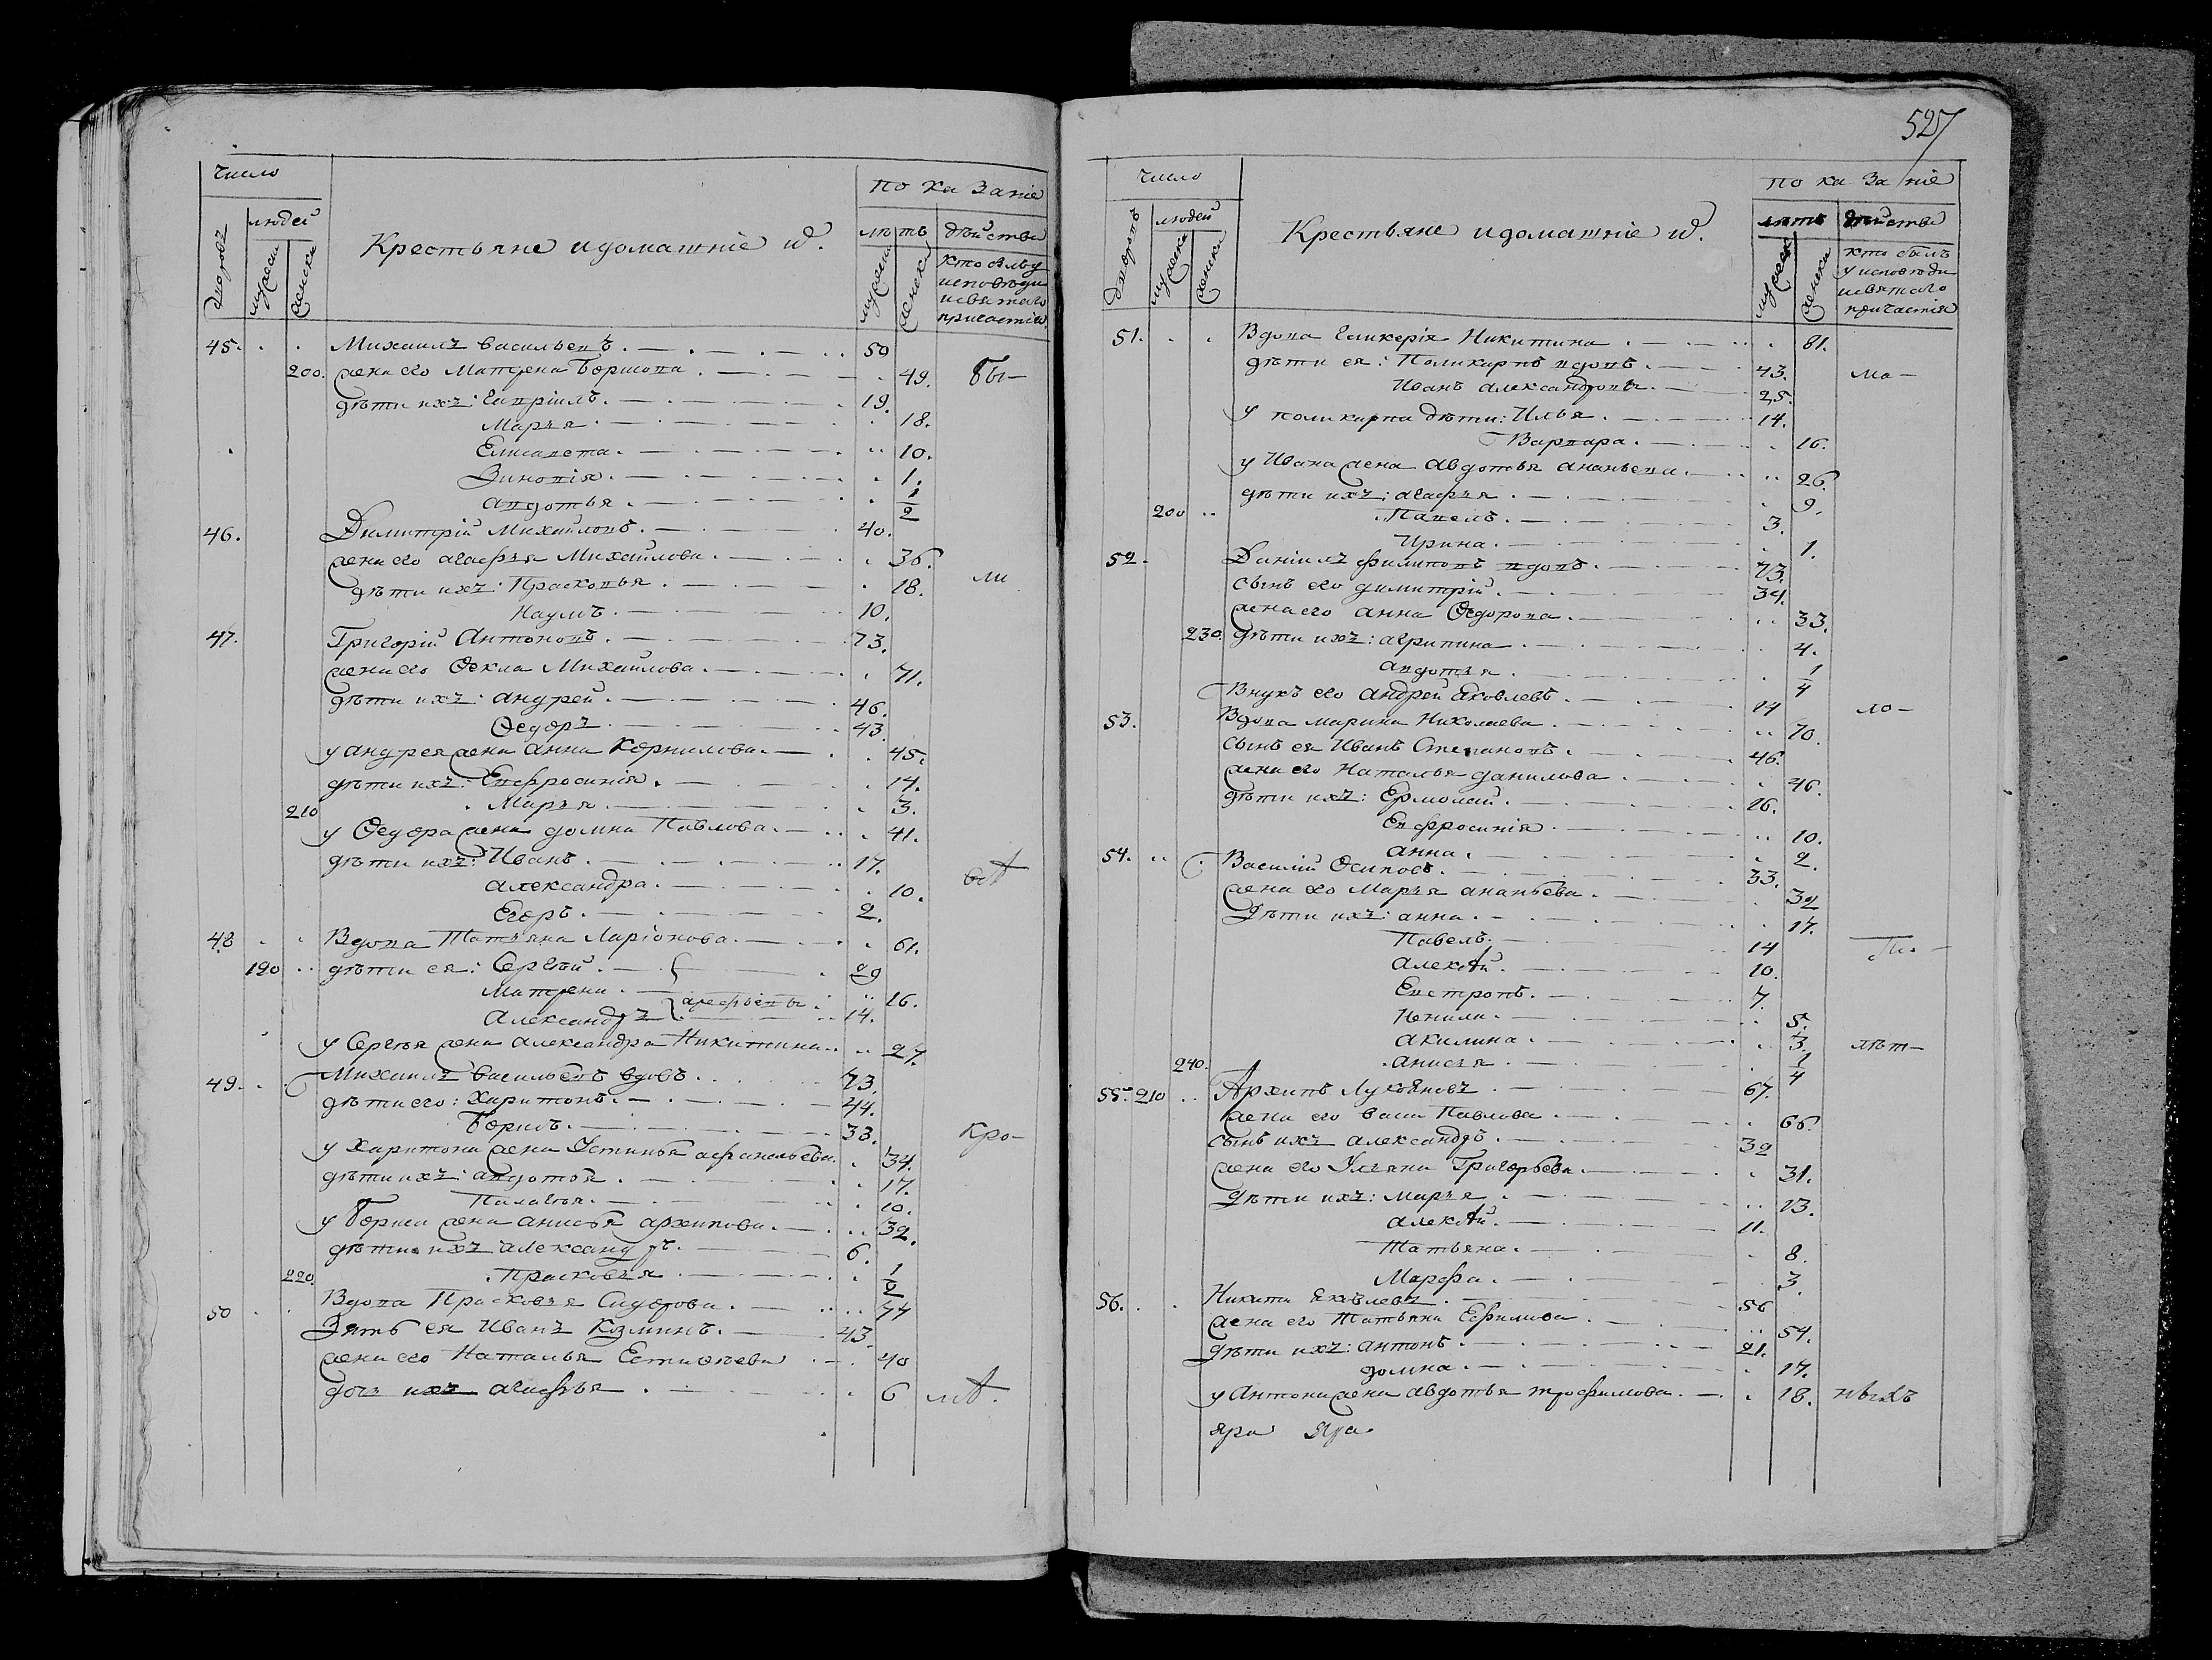 число
показаніе
дворовъ
людей
мужеска
женска
Крестьяне и домашніе и.
лѣтъ
дѣйства
мужеска
женска
кто былъ у
исповѣди
и святаго
причастія
45. Михаилъ Васильевъ. 50
200. жена его Матрена Борисова. 49. бы-
дѣти ихъ: Гавріилъ. 19.
Марья 18.
Елисавета. 10.
Зиновія. 1.
Авдотья. 1/2
46. Димитрій Михайловъ. 40.
жена его Агафья Михайлова. 36.
дѣти ихъ: Прасковья. 18. ли
Наумъ. 10.
47. Григорій Антоновъ. 73.
жена его Ѳекла Михайлова. 71.
дѣти ихъ: Андрей. 46.
Ѳедоръ. 43.
у Андрея жена Анна Корнилова. 45.
дѣти ихъ: Евфросинія. 14.
210 Марья. 3.
у Ѳедора жена Домна Павлова. 41.
дѣти ихъ: Иванъ. 17.
Александра. 10.
Егоръ. 2.
48 Вдова Татьяна Ларіонова. 61.
120 дѣти ея: Сергѣй. 29
Матрена. 16.
Арефьевы
Александръ 14.
у Сергѣя жена Александра Никитина. 27.
49. Михаилъ Васильевъ вдовъ. 73.
дѣти его: Харитонъ. 44.
Борисъ. 33. кро-
у Харитона жена Устинья Афанасьева. 34.
дѣти ихъ: Авдотья. 17.
Палагея. 10.
у Бориса жена Анисья Архипова. 32.
дѣти ихъ Александръ. 6.
220. Прасковья 1/2
50 Вдова Прасковья Сидорова. 74
Зять ея Иванъ Козминъ. 43.
жена его Наталья Естифѣева 40
дочь ихъ Агафья. 6
527
число
показаніе
дворовъ
людей
мужеска
женска
Крестьяне и домашніе и.
лѣтъ
дѣйства
мужеска
женска
кто былъ
у исповѣди
и святаго
причастія
51. Вдова Гликерія Никитина. 81.
дѣти ея: Поликарпъ вдовъ. 43. ма-
Иванъ Александровы. 25.
у Поликарпа дѣти: Илья. 14.
Варвара. 16.
у Ивана жена Авдотья Ананьева. 26.
дѣти ихъ: Агафья. 9.
200 Павелъ. 3.
Ирина. 1.
52. Даніилъ Филиповъ вдовъ. 73.
сынъ его Димитрій. 34.
жена его Анна Ѳедорова. 33.
230. дѣти ихъ: Агрипина. 4.
Авдотья. 1/4
Внукъ его Андрей Яковлевъ. 14 ло-
53. Вдова Марина Николаева. 70.
сынъ ея Иванъ Степановъ. 46.
жена его Наталья Данилова 46.
дѣти ихъ: Ермолай. 16.
Евфросинія 10.
Анна. 2.
54. Василій Осиповъ. 33.
жена его Марья Ананьева. 32
Дѣти ихъ: Анна. 17.
Павелъ. 14
Алексѣй. 10.
Евстропъ. 7.
Ненила. 5.
Акилина. 3. лѣт-
240. Анисья. 1/4
55. 210 Архипъ Лукояновъ 67.
жена его Васа Павлова. 66.
сынъ ихъ Александръ. 32
жена его Ульяна Григорьева. 31.
Дѣти ихъ: Марья 13.
Алексѣй. 11.
Татьяна. 8.
Марфа. 3.
56. Никита Яковлевъ. 56
жена его Татьяна Ефимова. 54.
дѣти ихъ: Антонъ. 21.
Домна. 17.
у Антона жена Авдотья Трофимова. 18.